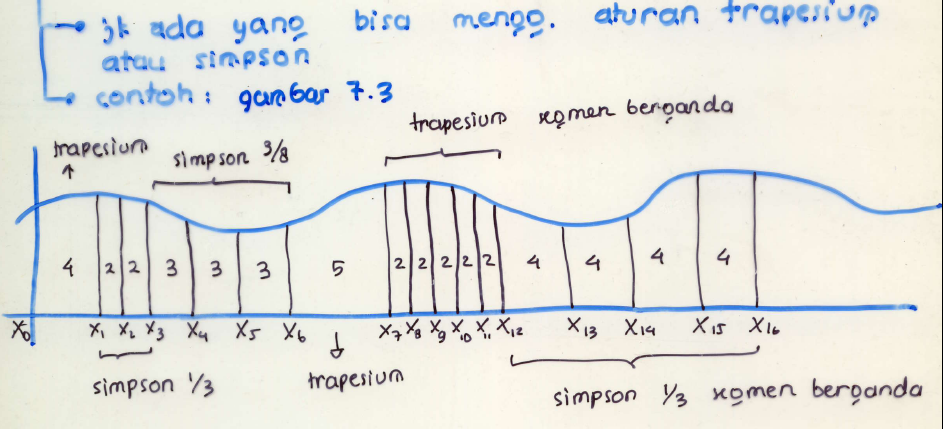 jk ada yang bisa mengg. aturan trapesium
atau simpson
contoh: gambar 7.3
trapesium segmen berganda
trapesium simpson 3/8
4 2 2 3 3 3 5 2 2 2 2 2 4 4 4 4
X0 X1 X2 X3 X4 X5 X6 X7 X8 X9 X10 X11 X12 X13 X14 X15 X16
simpson 1/3 trapesium simpson 1/3 segmen berganda